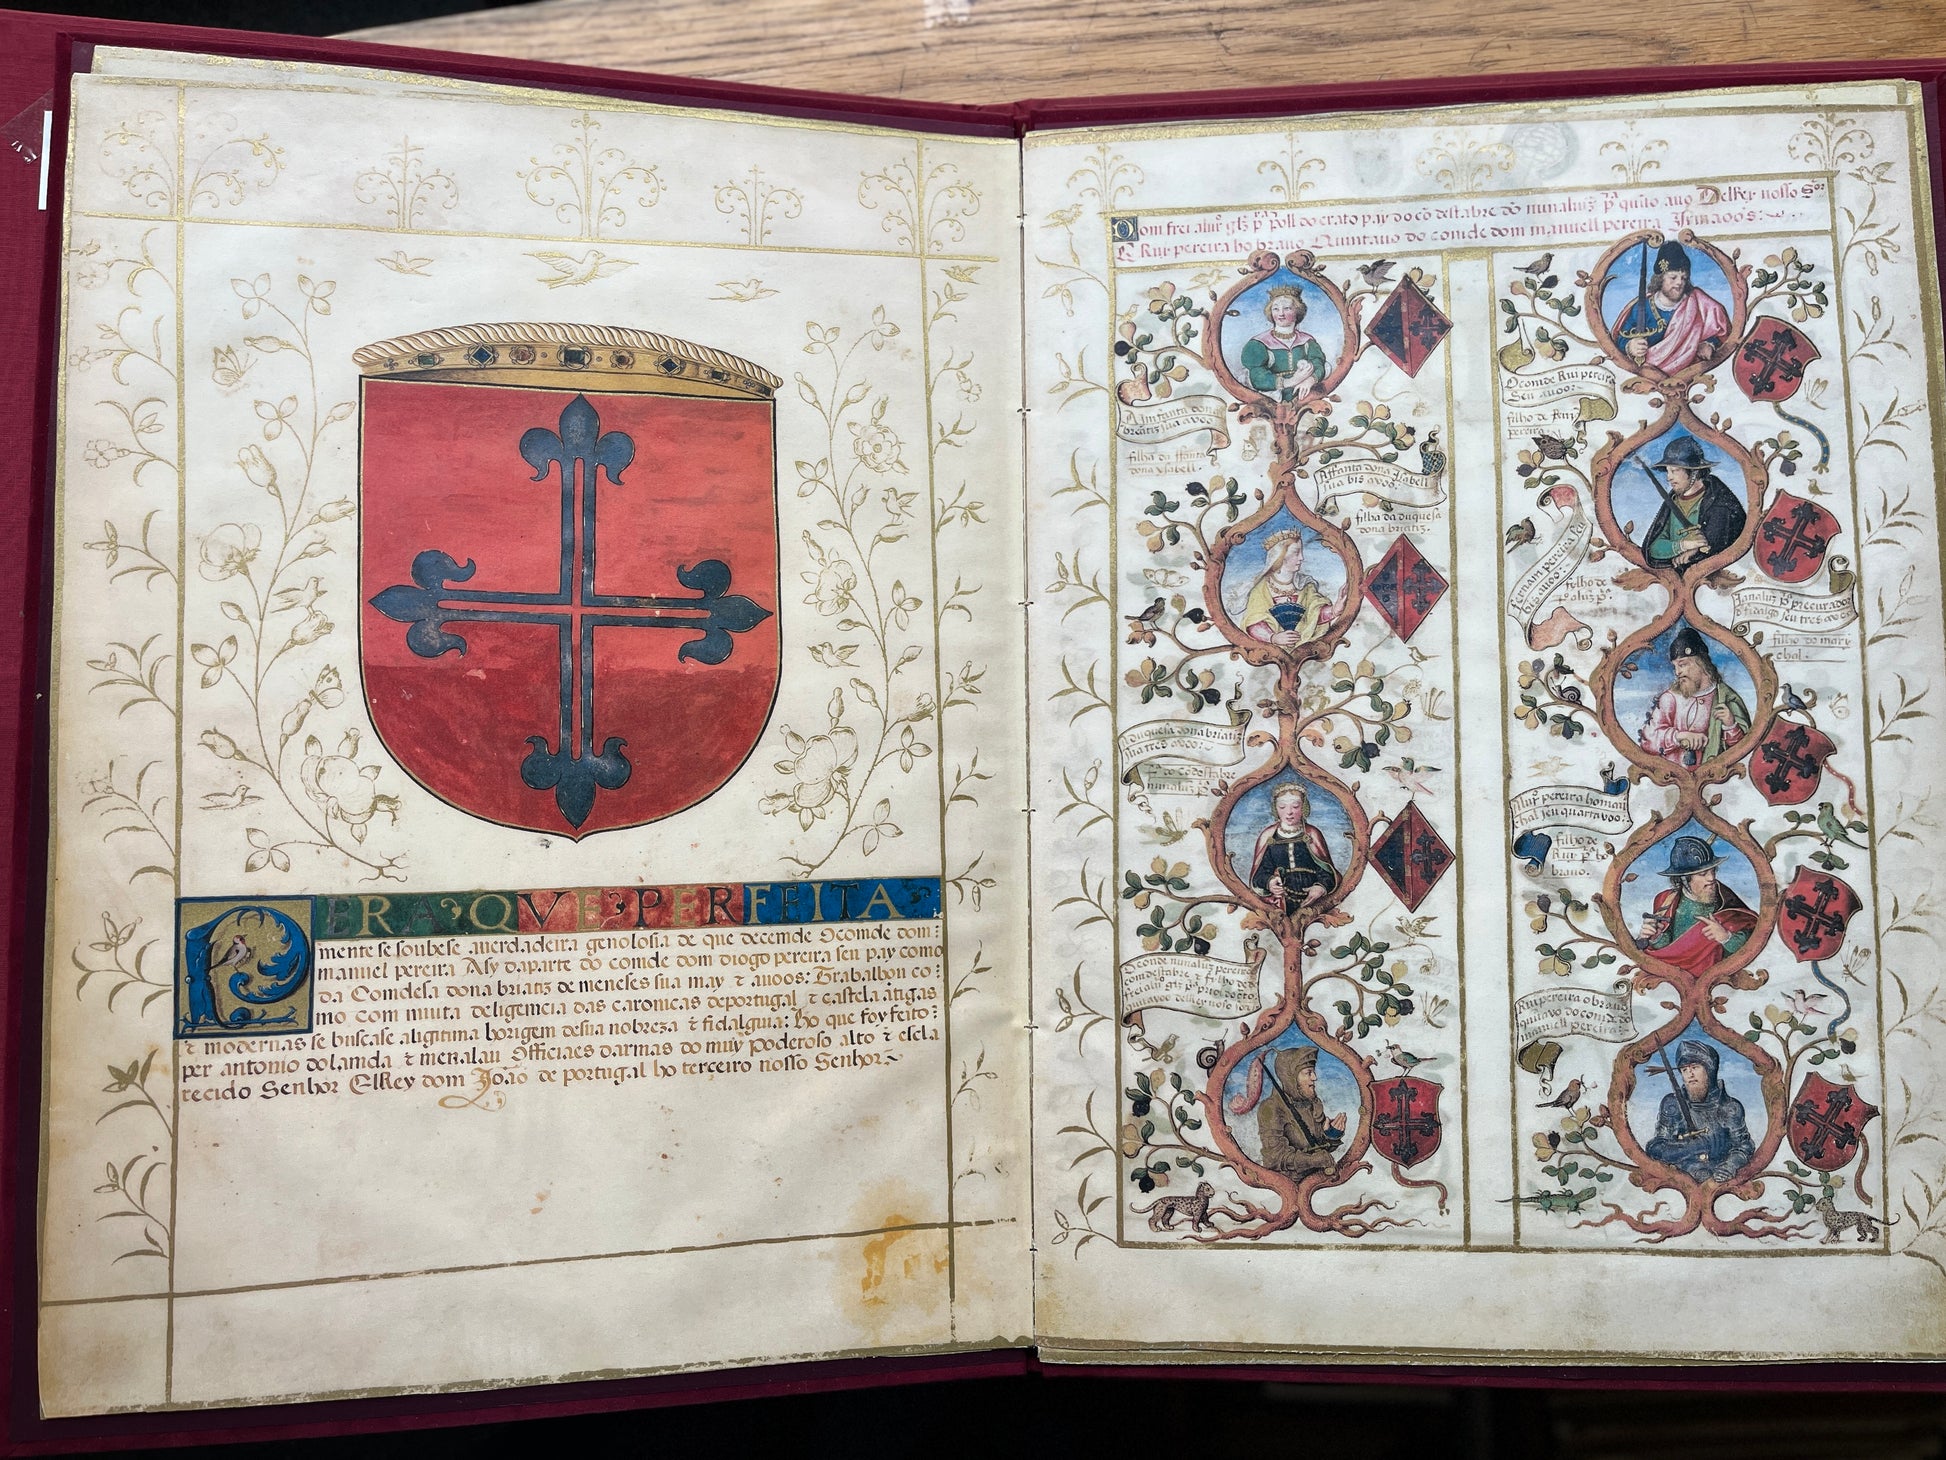 PERA QVE PERFEITA
mente se soubese auerdadeira genolosia de que decemde Ocomde dom
manuel pereira Asy daparte do comde dom diogo pereira seu pay como
da Comdesa dona briatiz de meneses sua may τ auoos: Trabalhou co
mo com muita deligemcia das caronicas deportugal τ castela ātigas
τ modernas se buscase aligitima horigem desua nobreza τ fidalguia: ho que foy feito
per antonio dolamda τ menalau Officiaes darmas do muy poderoso alto τ escla
recido Senhor ElRey dom João de portugal ho terceiro nosso Senhor
Dom frei aluº glz pª do crato pay do cõdestabre dõ nunaluz pª quito auo DelRey nosso Sor
E Rui pereira ho brauo Quintauo do comde dom manuell pereira Irmaoos:
A Imfanta dona
breatiz sua avoo
filha da Iffanta
dona ysabell.
Affanta dona Isabell
sua bis avoo
filha da duquesa
dona briatiz.
A duquesa dona briatiz
sua tres avoo
fª do cõdestabre
nunaluz pª
O conde nunaluz pereira
comdestabre τ filho de dõ
frei aluº glz pª prior do crato
quitavoo delRey noso sor
O comde Rui pereira
Seu avoo:
filho de Rui
pereira
fernam pereira seu
bis avoo:
filho de
Jº aluz pª
Janaluz pª precurador
d fidalgo seu tres avoo
filho do mare
chal.
Aluº pereira ho mari
chal seu quartavoo:
filho de
Rui pª ho
brauo.
Rui pereira o brauo
quitavo do comde dõ
manuell pereira: